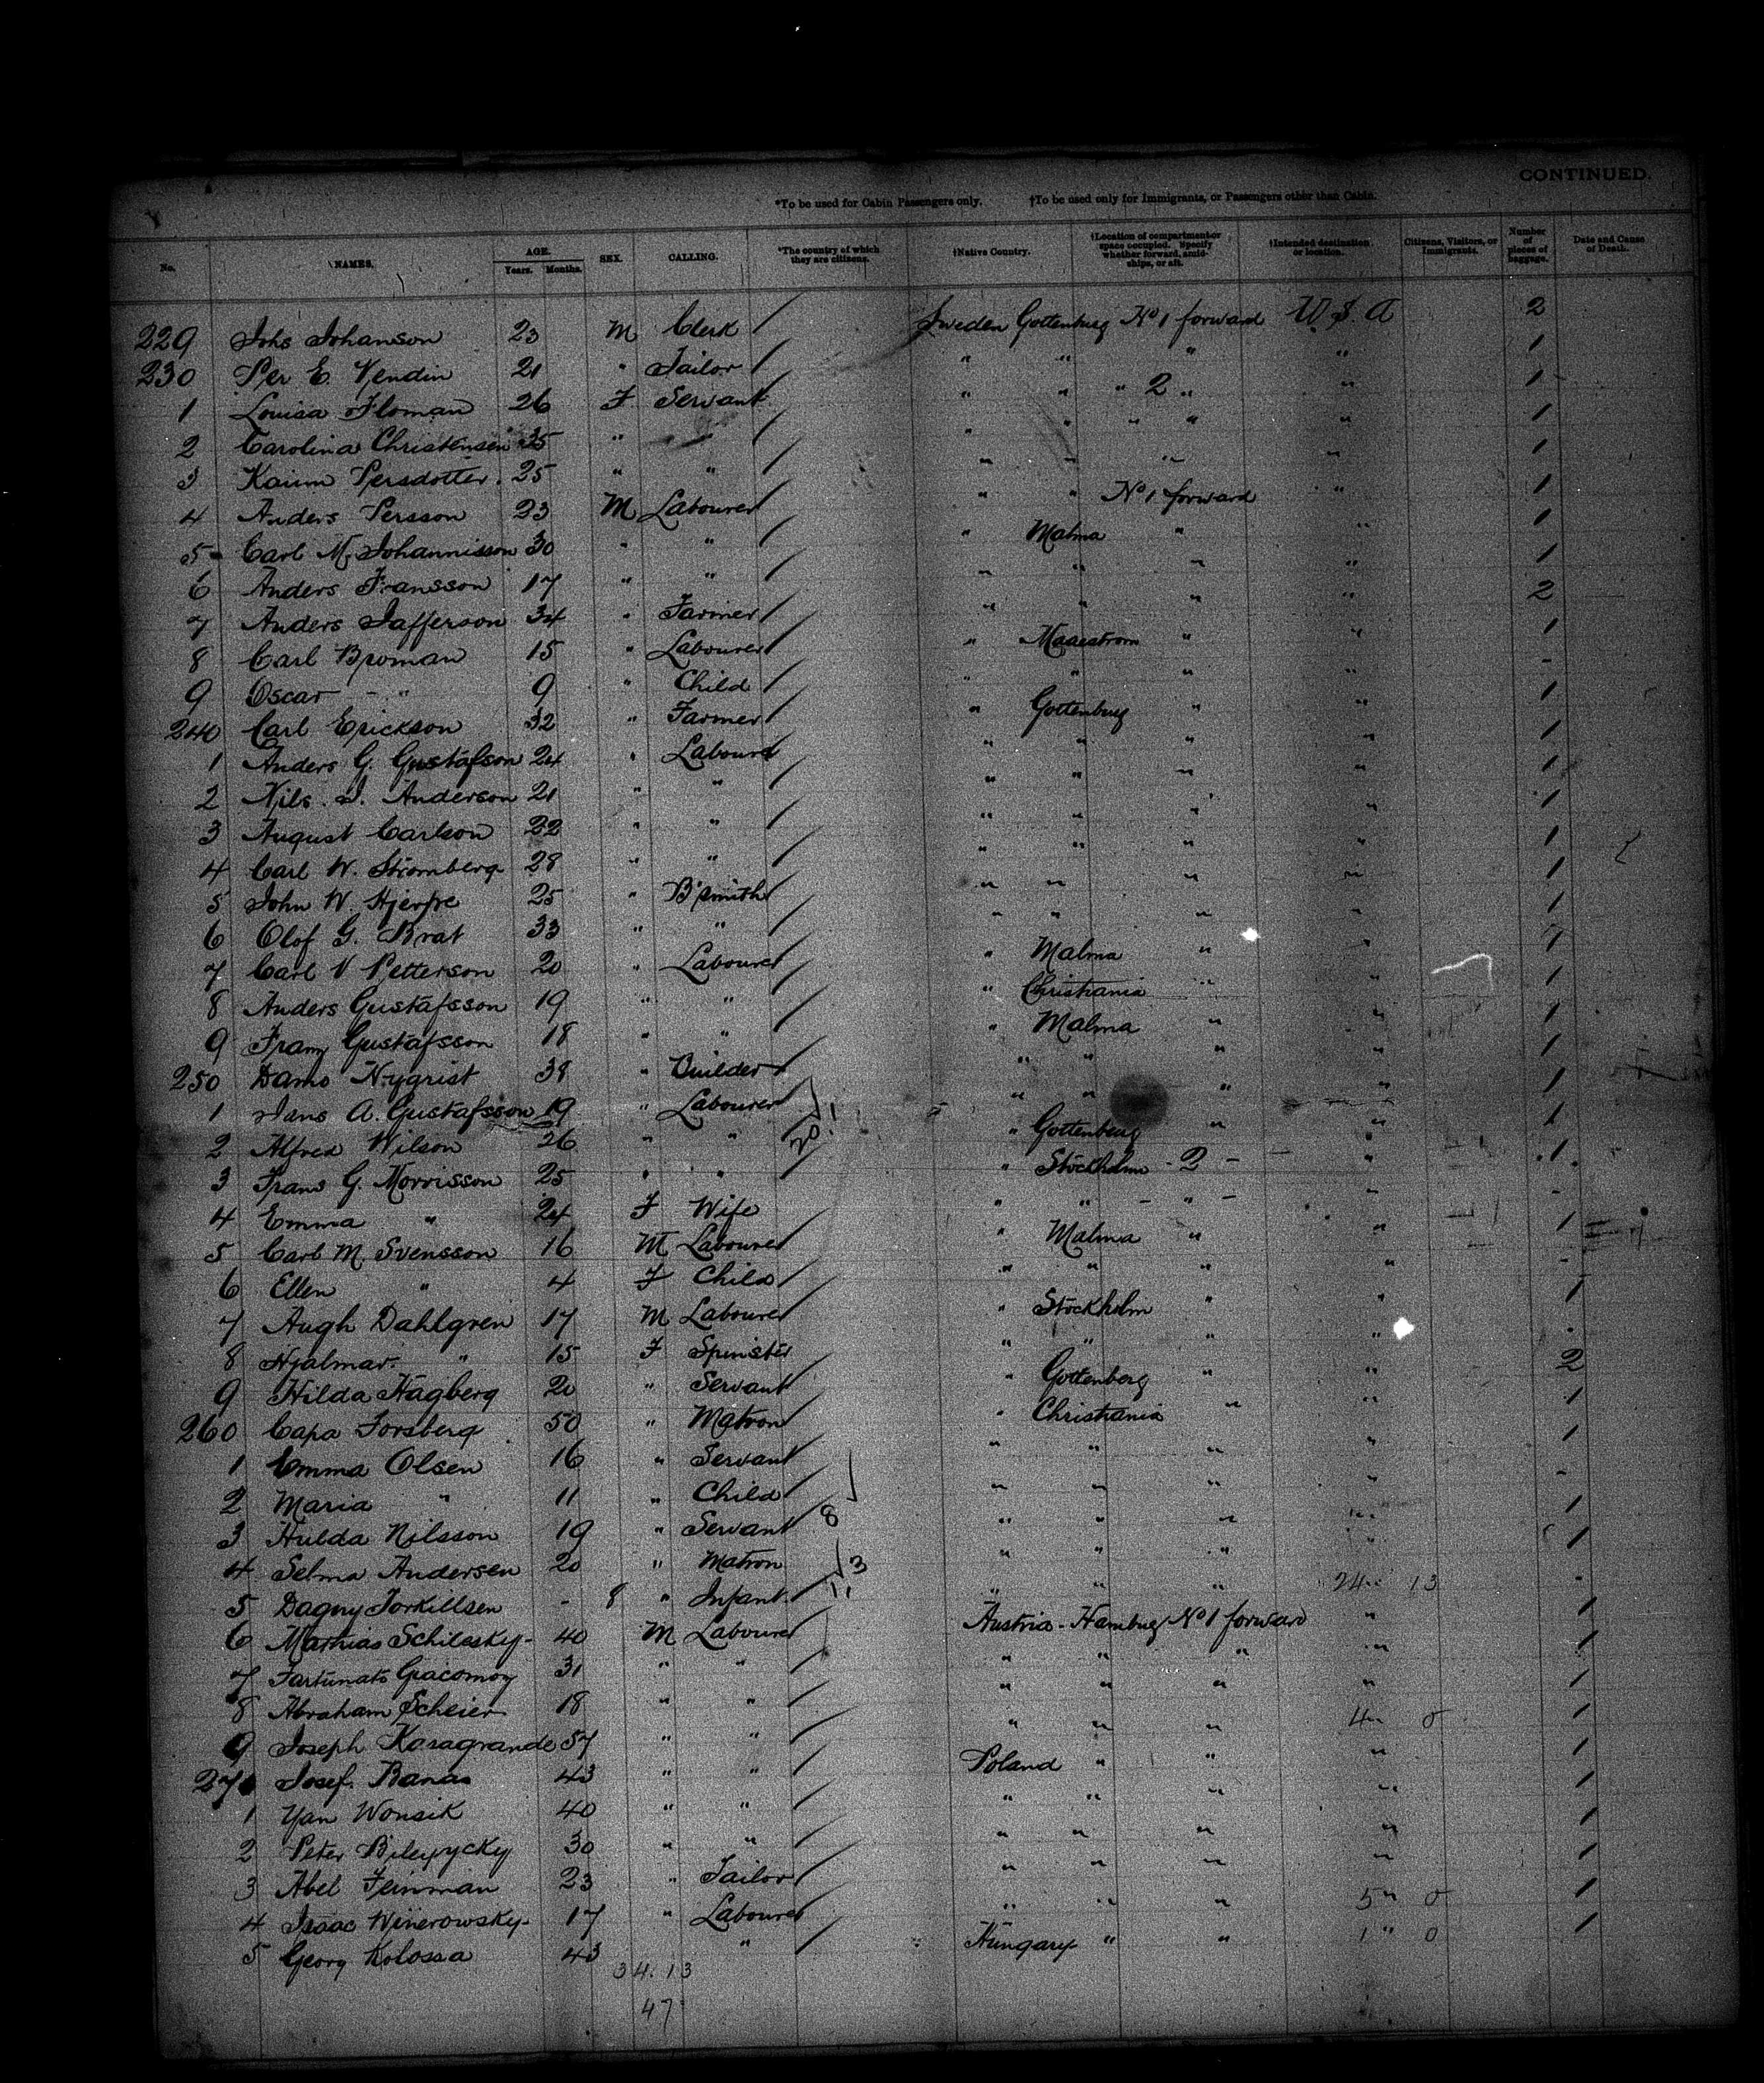 CONTINUED.
*To be used for Cabin Passengers only. †To be used only for Immigrants, or Passengers other than Cabin.
No. NAMES. AGE. Years. Months. SEX. CALLING. *The country of which they are citizens. †Native Country. †Location of compartment or space occupied. Specify whether forward, amidships, or aft. †Intended destination or location. Citizens, Visitors, or Immigrants. Number of pieces of baggage. Date and Cause of Death.
229 Johs Johanson 23 M Clerk / Sweden Gottenburg No 1 forward U.S.A 2
230 Per E. Vendin 21 " Tailor / " " " " 1
1 Louisa Floman 26 F Servant / " " " 2 " " 1
2 Carolina Christensen 35 " " / " " " " " 1
3 Karim Persdotter 25 " " / " " " " 1
4 Anders Persson 23 M Labourer / " " No 1 forward " 1
5 Carl M. Johannisson 30 " " / " Malma " " 1
6 Anders Fransson 17 " " / " " " " 1
7 Anders Jafferson 34 " Farmer / " " " " 2
8 Carl Broman 15 " Labourer / " " " 1
9 Oscar " 9 " Child / " " " " -
240 Carl Erickson 32 " Farmer / " Gottenburg " " 1
1 Anders G. Gustafson 24 " Labourer / " " " " 1
2 Nils. J. Anderson 21 " " / " " " " 1
3 August Carlson 22 " " / " " " " 1
4 Carl W. Stromberg 28 " " / " " " " 1
5 John W. Hjerpe 25 " B'smith / " " " " 1
6 Olof G. Brat 33 " " / " " " " 1
7 Carl V Petterson 20 " Labourer / " Malma " " 1
8 Anders Gustafsson 19 " " / " Christiania " " 1
9 Franz Gustafsson 18 " " / " Malma " " 1
250 Nygrist 38 " Builder / " " " " 1
1 Jans A. Gustafsson 19 " Labourer / " " " " 1
2 Alfred Wilson 26 " " 20 " Gottenburg " "
3 Frans G. Morrisson 25 " " / " Stockholm - 2 - " 1
4 Emma " 24 F Wife / " " - " - " -
5 Carl M. Svensson 16 M Labourer / " Malma " " 1
6 Ellen " 4 F Child / " " " " -
7 Augh Dahlgren 17 M Labourer / " Stockholm " " 1
8 Hjalmar " 15 F Spinster " " " " -
9 Hilda Hagberg 20 " Servant / " Gottenberg " " 2
260 Capa Forsberg 50 " Matron / " Christiania " " 1
1 Emma Olsen 16 " Servant / " " " " 1
2 Maria " 11 " Child / " " " " -
3 Hulda Nilsson 19 " Servant / 8 " " " " 1
4 Selma Andersen 20 " Matron 3 " " " " 1
5 Dagny Torkillsen - 8 " Infant / " " " 24 " 13 -
6 Mathias Schilesky 40 M Labourer / Austria - Hamburg No 1 forward " 1
7 Fartunato Giacomoy 31 " " / " " " " 1
8 Abraham Scheier 18 " " / " " " " 1
9 Joseph Karagrande 57 " " / " " " 4 " 0 1
270 Josef Banas 43 " " / Poland " " " 1
1 Yan Wonsik 40 " " / " " " " 1
2 Peter 30 " " / " " " " 1
3 Abel Feinman 23 " Tailor / " " " " 1
4 Isaac Winerowsky 17 " Labourer / " " " 5 " 0 1
5 Georg Kolossa 43 " " / Hungary " " 1 " 0 1
34. 13
47